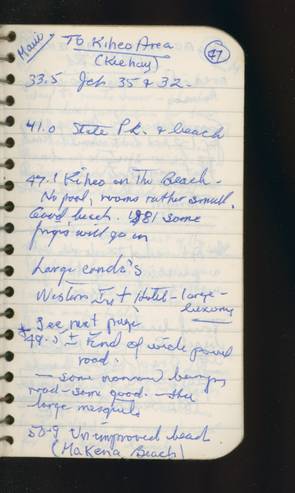 Maui
To Kiheo Area
47
(Keehay)
33.5 Jct 35 & 32 -
41.0 State Pk. & beach
47.1 Kiheo on The Beach -
No pool, rooms rather small.
Good beach. 1981 some
will go in
Large condo's
Western Int Hotel - large -
luxury
* See next page
48.5 ± End of wide paved
road.
- some narrow bumpy
road - some good. - thru
large mesquite
50.9 Unimproved beach
(Makena Beach)